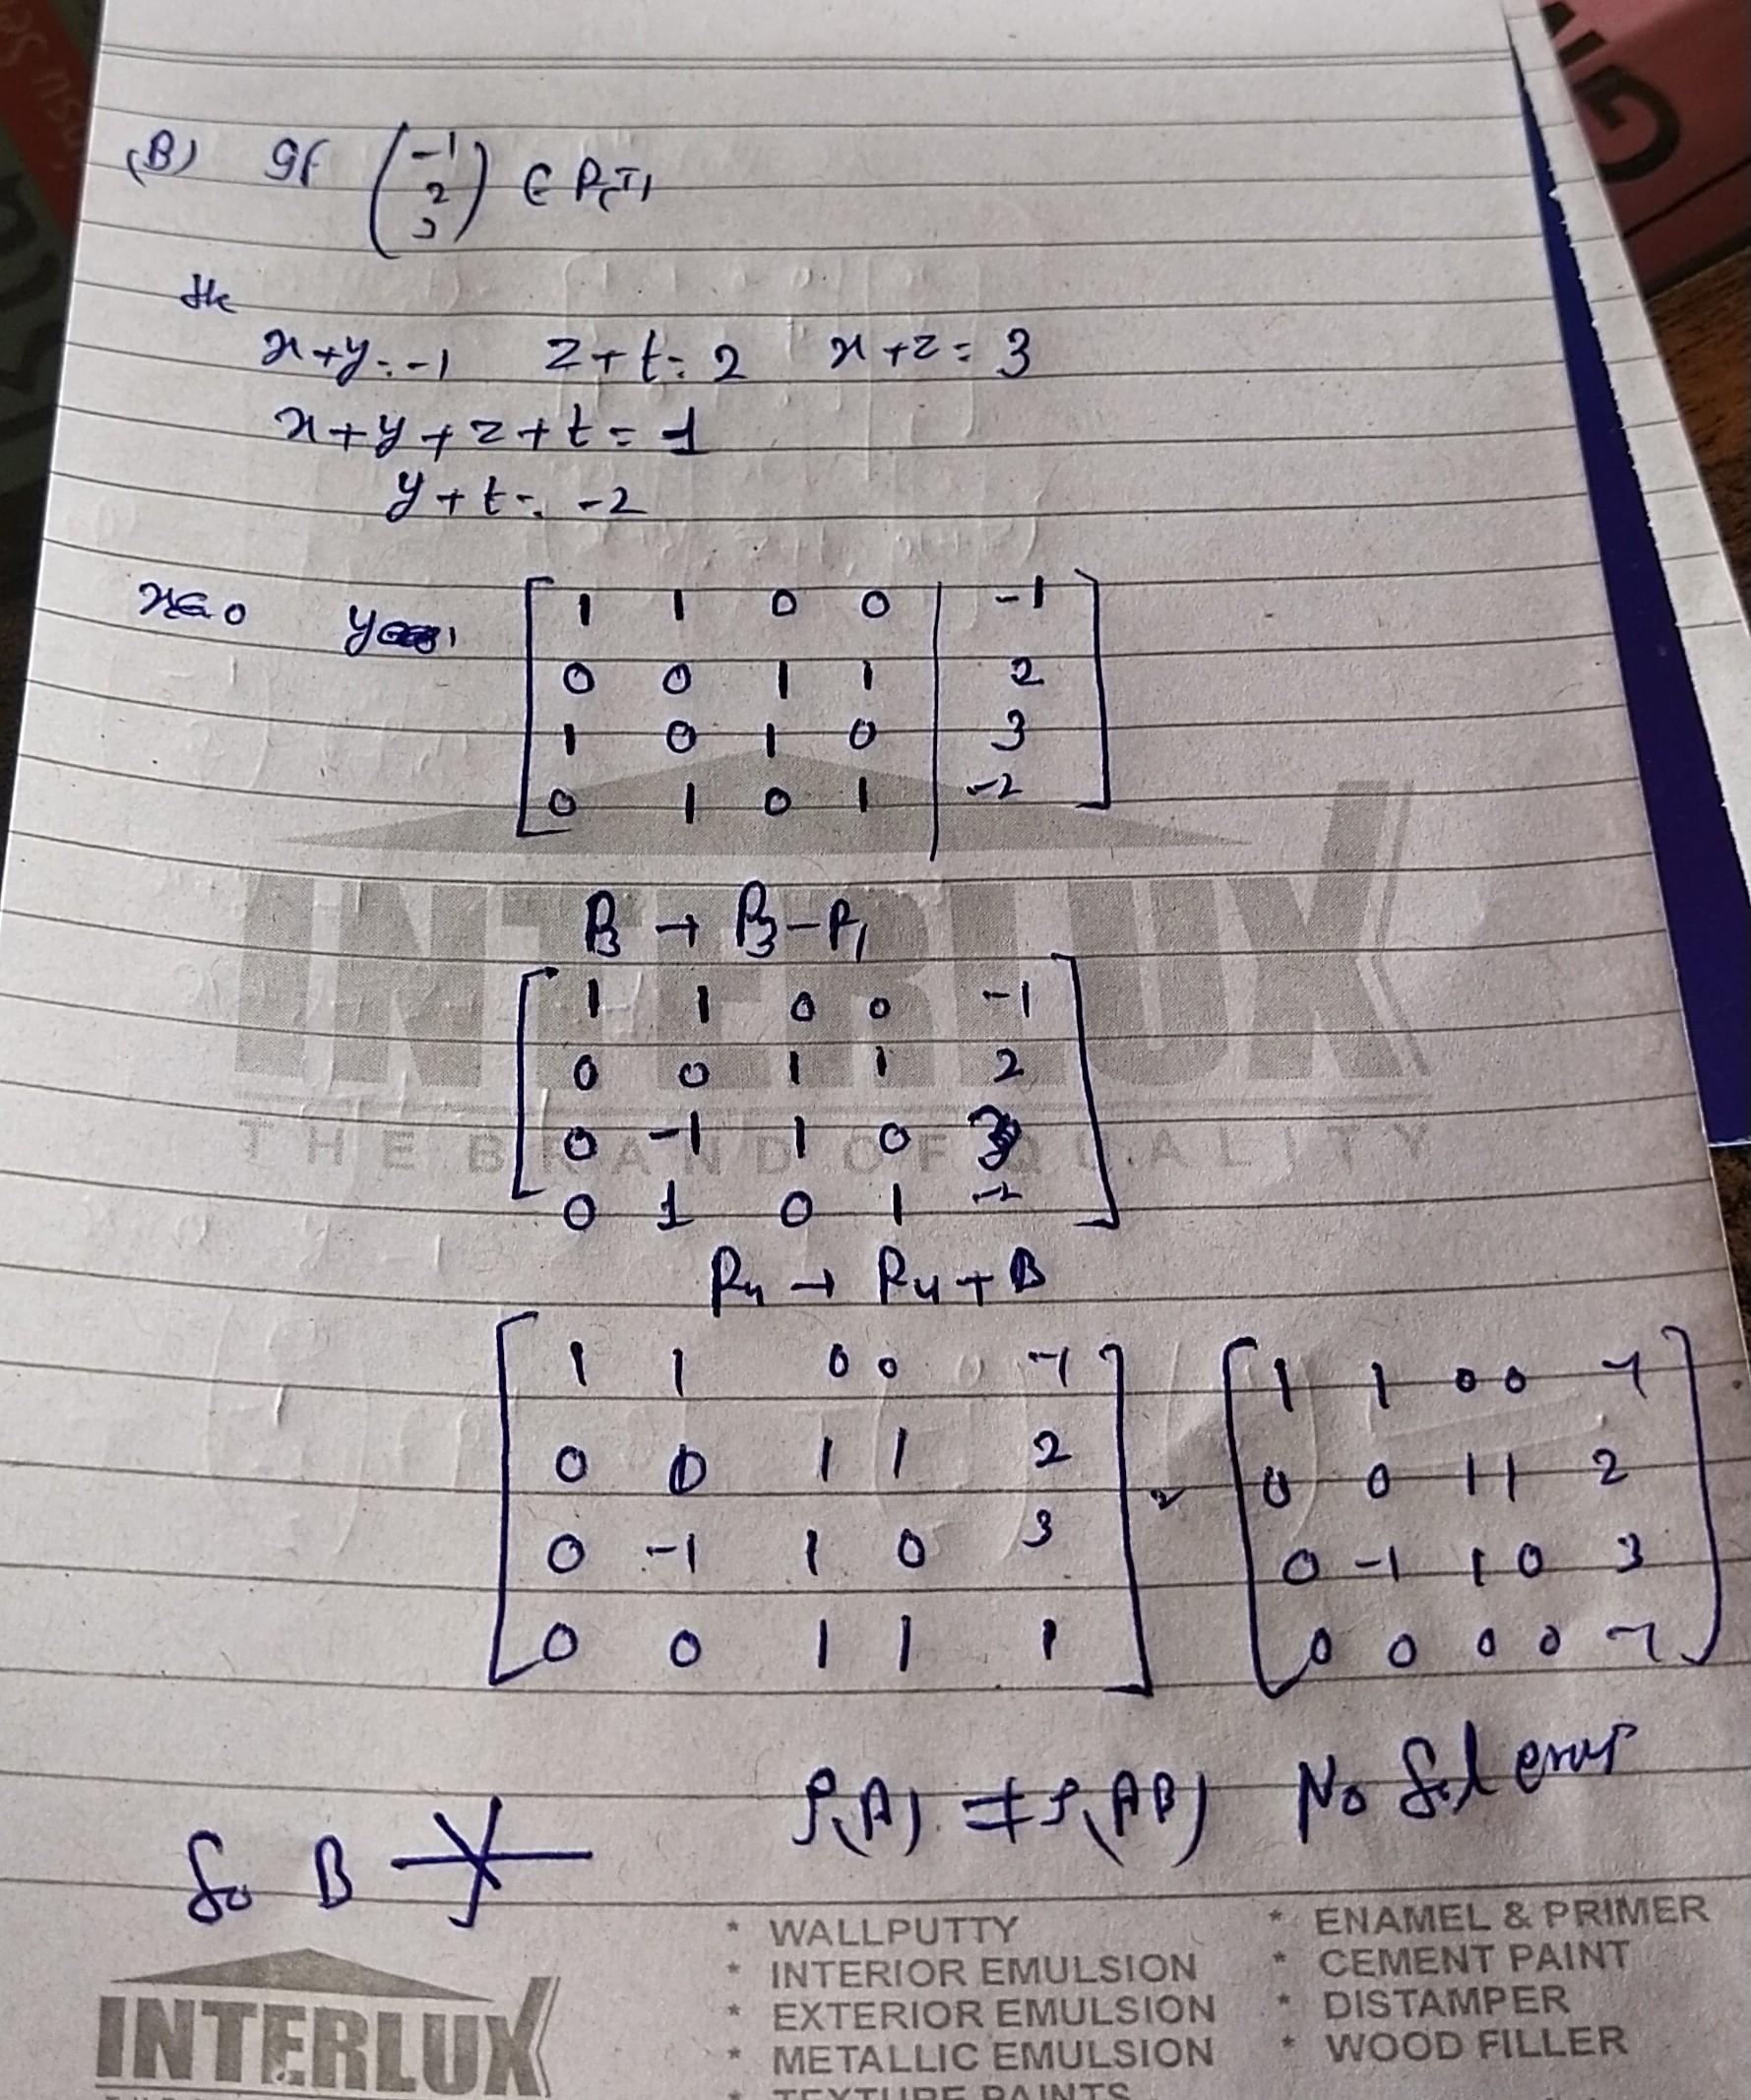 (B) If (-1 2 3) ∈ R(T)
the
x+y=-1 z+t=2 x+z=3
x+y+z+t=1
y+t=-2
x=0 y
1 1 0 0 | -1
0 0 1 1 | 2
1 0 1 0 | 3
0 1 0 1 | -2
R3 → R3-R1
1 1 0 0 -1
0 0 1 1 2
0 -1 1 0 3
0 1 0 1 -2
R4 → R4+R3
1 1 0 0 -1
0 0 1 1 2
0 -1 1 0 3
0 0 1 1 1
~
1 1 0 0 -1
0 0 1 1 2
0 -1 1 0 3
0 0 0 0 -1
ρ(A) ≠ ρ(AB) No Sol
So B X
INTERLUX
THE BRAND OF QUALITY
INTERLUX
* WALLPUTTY
* INTERIOR EMULSION
* EXTERIOR EMULSION
* METALLIC EMULSION
* TEXTURE PAINTS
* ENAMEL & PRIMER
* CEMENT PAINT
* DISTAMPER
* WOOD FILLER